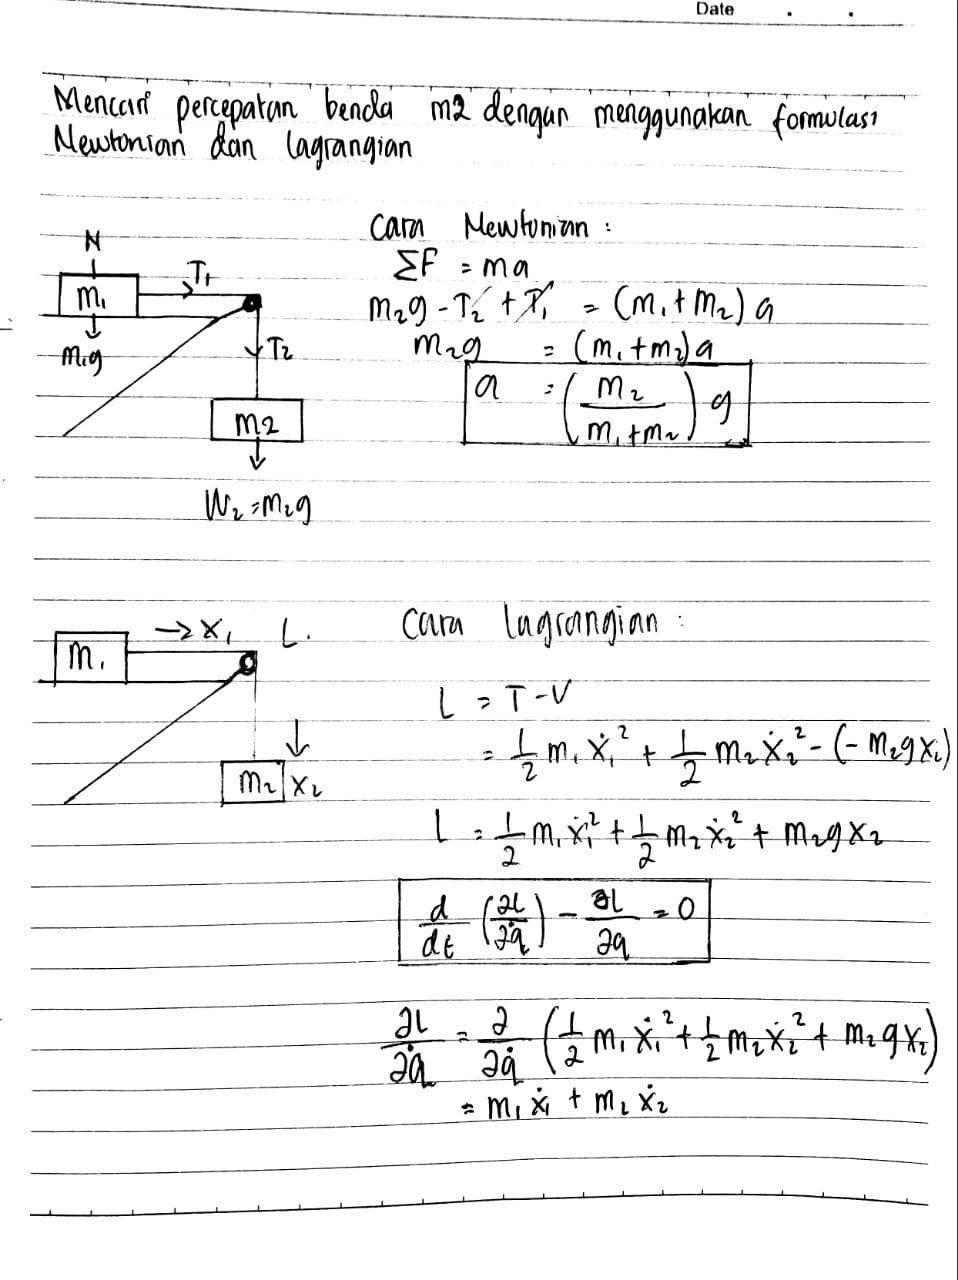 Date . .
Mencari percepatan benda m2 dengan menggunakan formulasi
Newtonian dan lagrangian
Cara Newtonian :
ΣF = ma
m₂g - T₂ + T₁ = (m₁ + m₂) a
m₂g = (m₁ + m₂) a
a = (m₂ / m₁ + m₂) g
N
m₁
T₁
m₁g
T₂
m2
W₂ = m₂g
Cara lagrangian :
m₁
→ x₁ L.
m₂ x₂
L = T - V
= 1/2 m₁ ẋ₁² + 1/2 m₂ ẋ₂² - (- m₂gx₂)
L = 1/2 m₁ ẋ₁² + 1/2 m₂ ẋ₂² + m₂gx₂
d/dt (∂L/∂q̇) - ∂L/∂q = 0
∂L/∂q̇ = ∂/∂q̇ (1/2 m₁ ẋ₁² + 1/2 m₂ ẋ₂² + m₂gx₂)
= m₁ ẋ₁ + m₂ ẋ₂